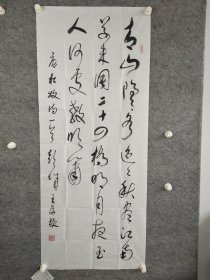 青山隱隱水迢迢秋盡江南
草未凋二十四橋明月夜玉
人何處教吹簫
杜牧詩一首